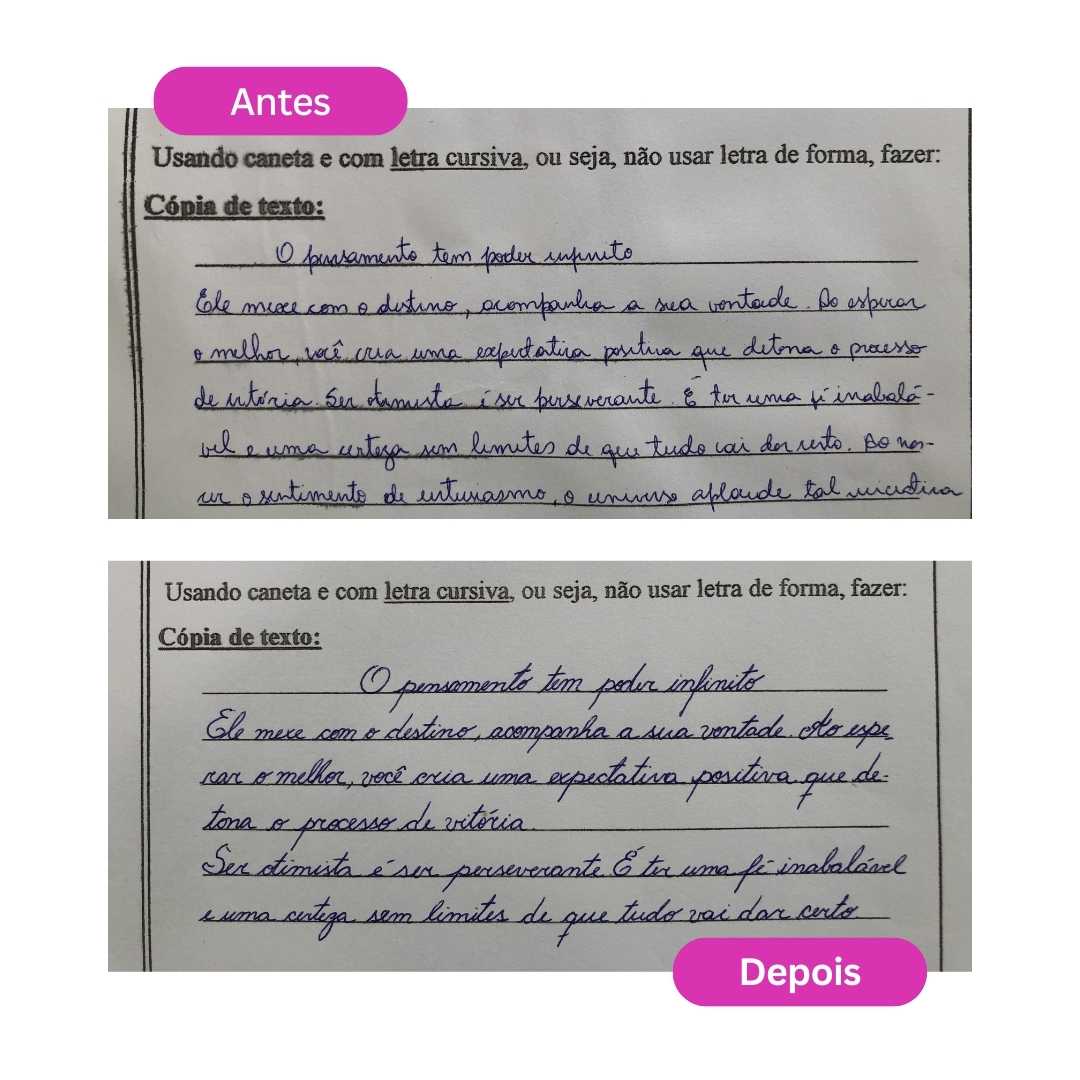 Antes
Usando caneta e com letra cursiva, ou seja, não usar letra de forma, fazer:
Cópia de texto:
O pensamento tem poder infinito
Ele mexe com o destino, acompanha a sua vontade. Ao esperar
o melhor, você cria uma expectativa positiva que detona o processo
de vitória. Ser otimista é ser perseverante. É ter uma fé inabalá-
vel e uma certeza sem limites de que tudo vai dar certo. Ao nas-
cer o sentimento de entusiasmo, o universo aplaude tal iniciativa
Usando caneta e com letra cursiva, ou seja, não usar letra de forma, fazer:
Cópia de texto:
O pensamento tem poder infinito
Ele mexe com o destino, acompanha a sua vontade. Ao espe-
rar o melhor, você cria uma expectativa positiva que de-
tona o processo de vitória.
Ser otimista é ser perseverante. É ter uma fé inabalável
e uma certeza sem limites de que tudo vai dar certo.
Depois